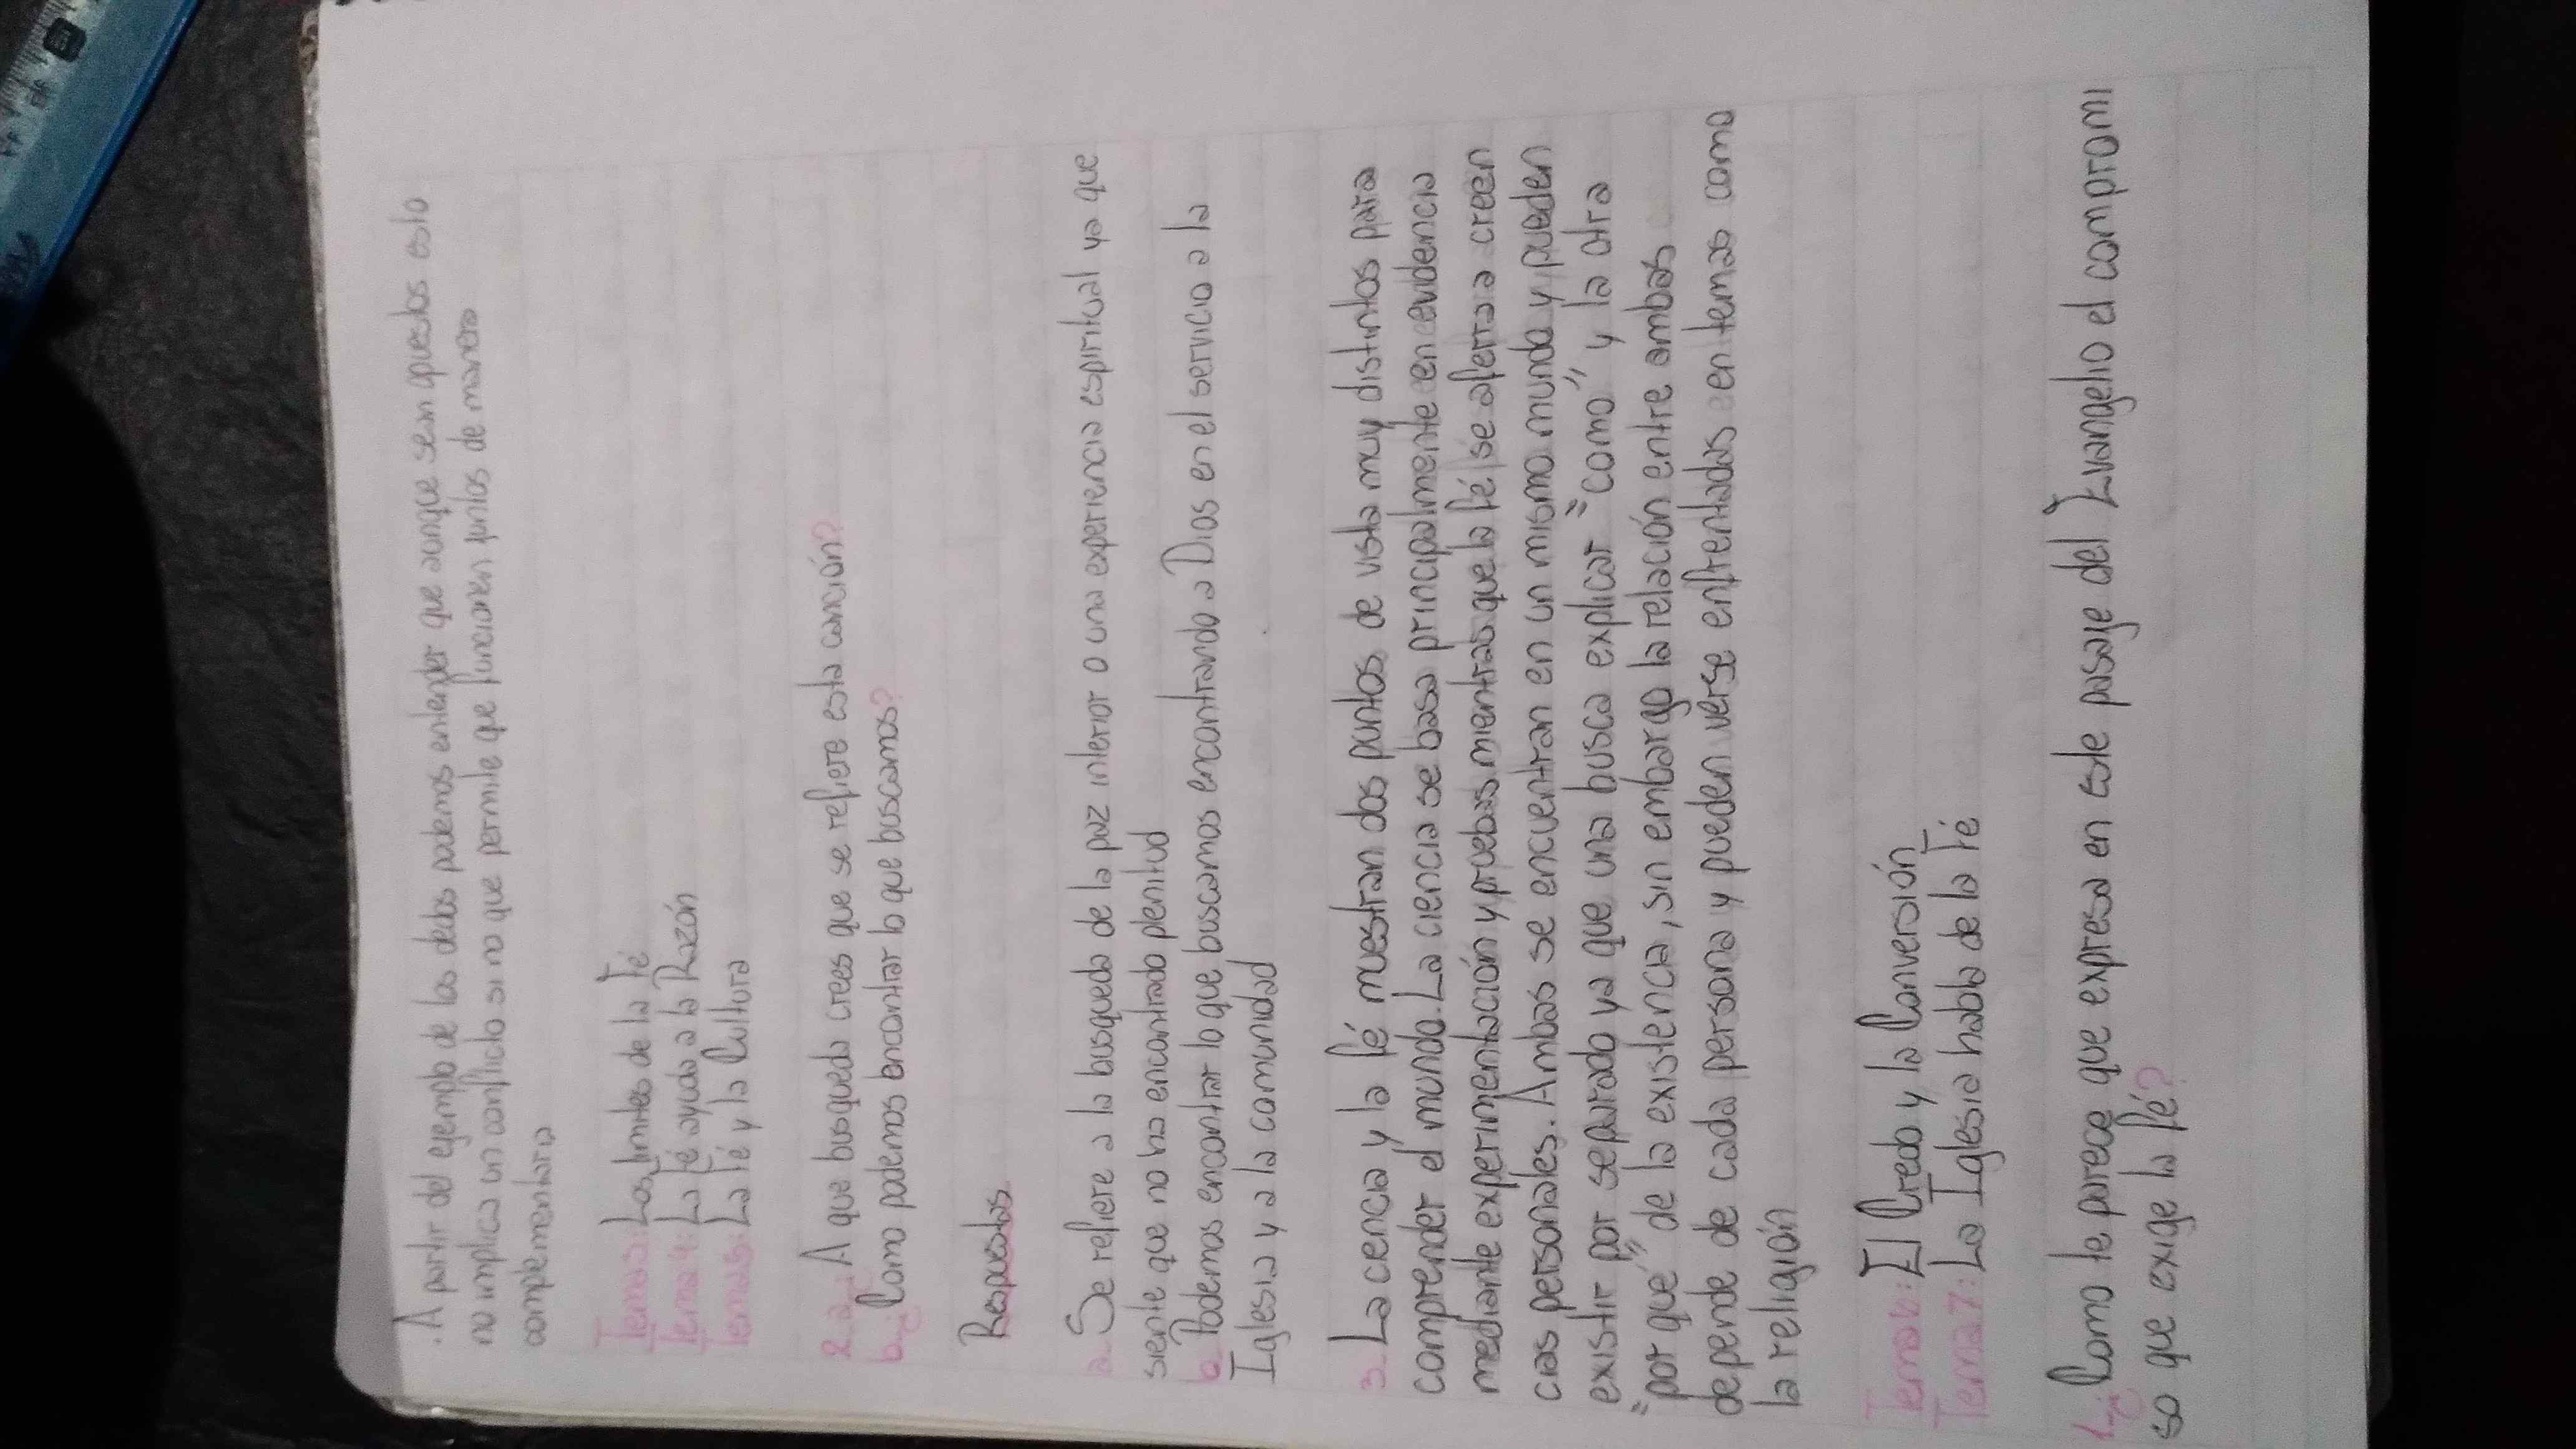 . A partir del ejemplo de los dedos podemos entender que aunque sean opuestos esto
no implica un conflicto si no que permite que funcionen juntos de manera
complementaria
Tema 3: Los limites de la Fé
Tema 4: La Fé ayuda a la Razón
Tema 5: La Fé y la Cultura
2. a ¿ A que busqueda crees que se refiere esta canción?
b ¿ Como podemos encontrar lo que buscamos?
Respuestas
a. Se refiere a la busqueda de la paz interior o una experiencia espiritual ya que
siente que no ha encontrado plenitud
b. Podemos encontrar lo que buscamos encontrando a Dios en el servicio a la
Iglesia y a la comunidad
3. La ciencia y la fé muestran dos puntos de vista muy distintos para
comprender el mundo. La ciencia se basa principalmente en evidencia
mediante experimentación y pruebas mientras que la fé se aferra a creen
cias personales. Ambas se encuentran en un mismo mundo y pueden
existir por separado ya que una busca explicar "como" y la otra
"por que" de la existencia, sin embargo la relación entre ambas
depende de cada persona y pueden verse enfrentadas en temas como
la religión
Tema 6: El Credo y la Conversión
Tema 7: La Iglesia habla de la Fé
1. ¿ Como te parece que expresa en este pasaje del Evangelio el compromi
so que exige la fé?